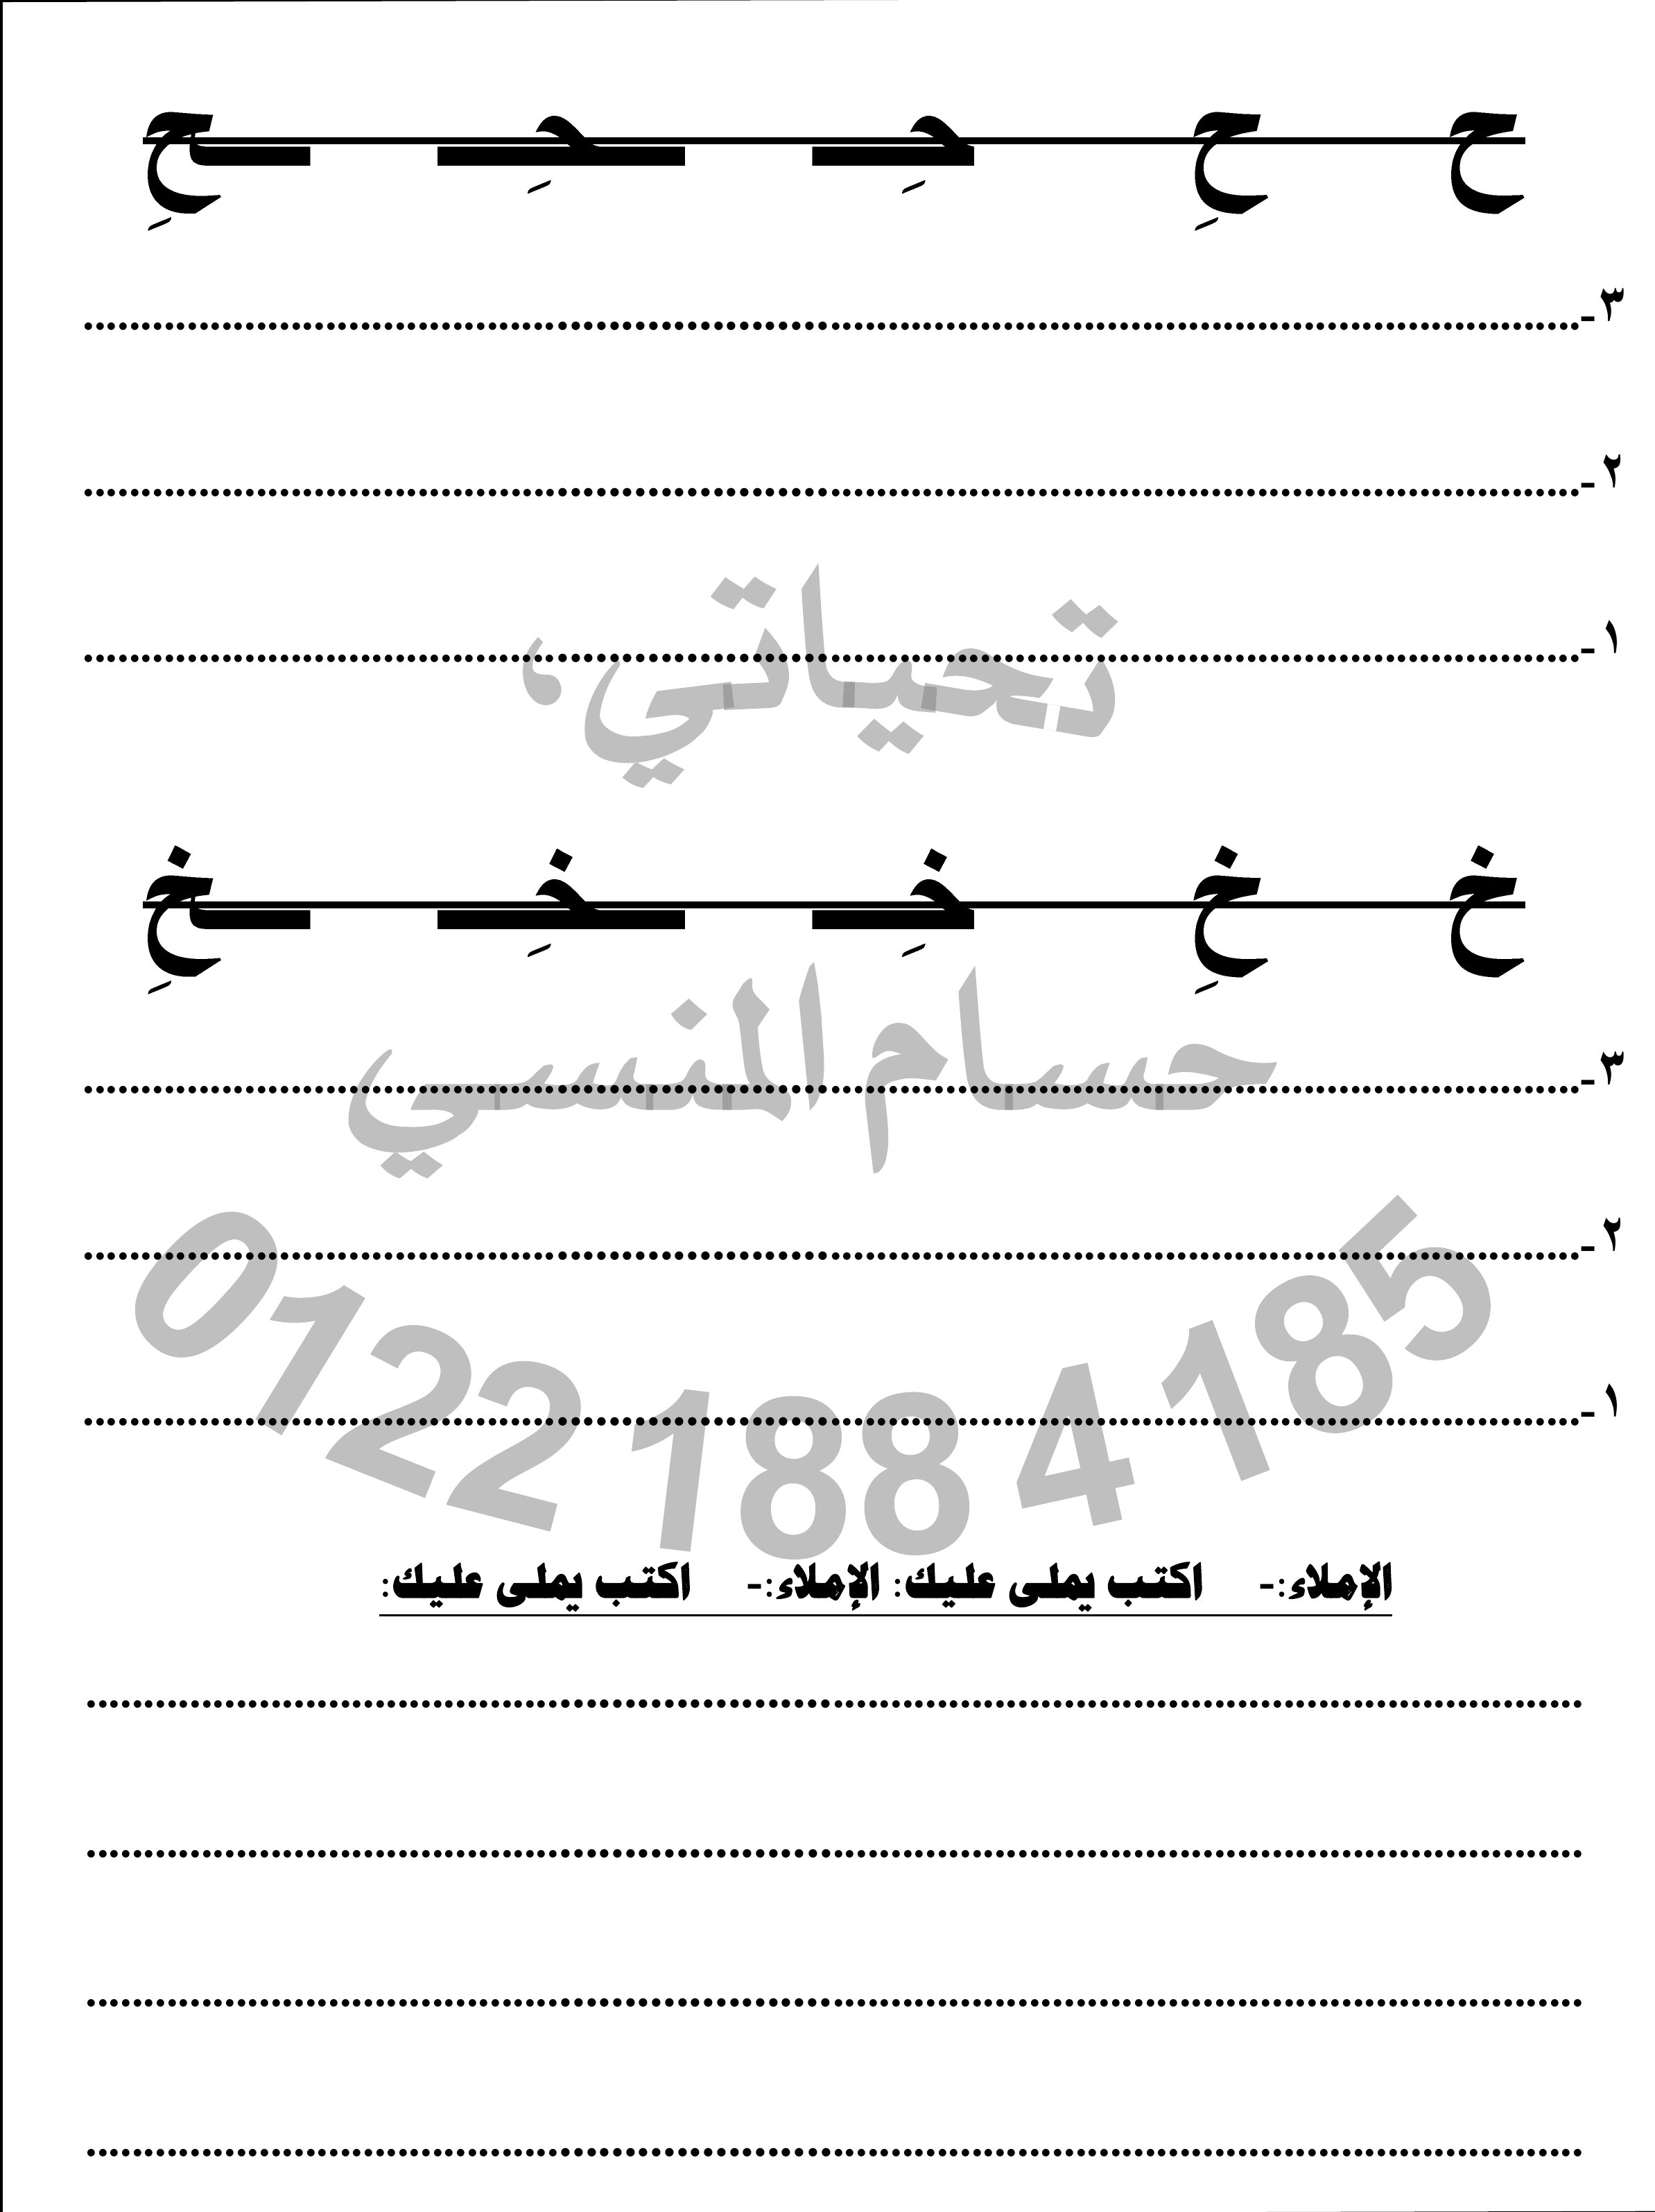 ح حِ حِـ ـحِـ ـحِ
٣-........................................
٢-........................................
١-........................................
تحياتي،
خ خِ خِـ ـخِـ ـخِ
حسام المنسي
٣-........................................
٢-........................................
١-........................................
0122 188 4 185
الإملاء:- اكتب يملى عليك: الإملاء:- اكتب يملى عليك:
........................................
........................................
........................................
........................................